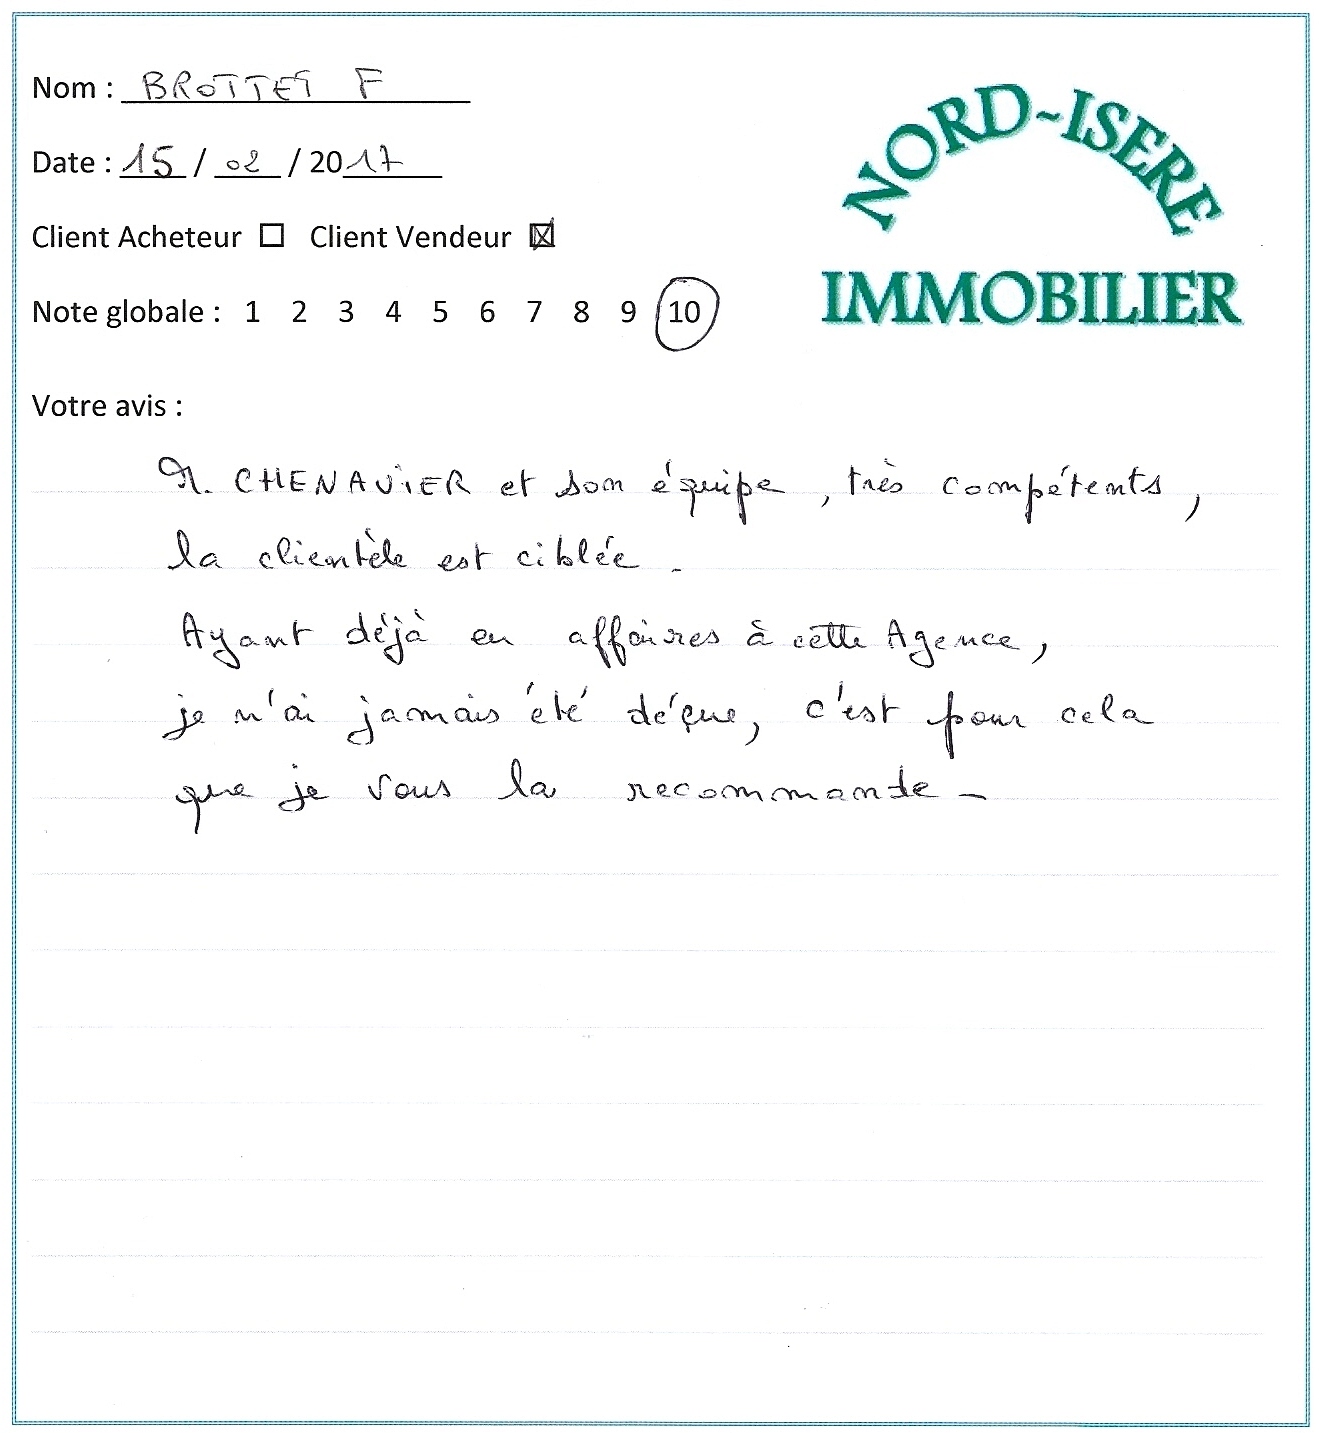 Nom : BROTTET F
Date : 15 / 02 / 2017
Client Acheteur ☐ Client Vendeur ☒
Note globale : 1 2 3 4 5 6 7 8 9 10
NORD-ISERE
IMMOBILIER
Votre avis :
M. CHENAVIER et son équipe, très compétents,
la clientèle est ciblée.
Ayant déjà eu affaires à cette Agence,
je n'ai jamais été déçue, c'est pour cela
que je vous la recommande -